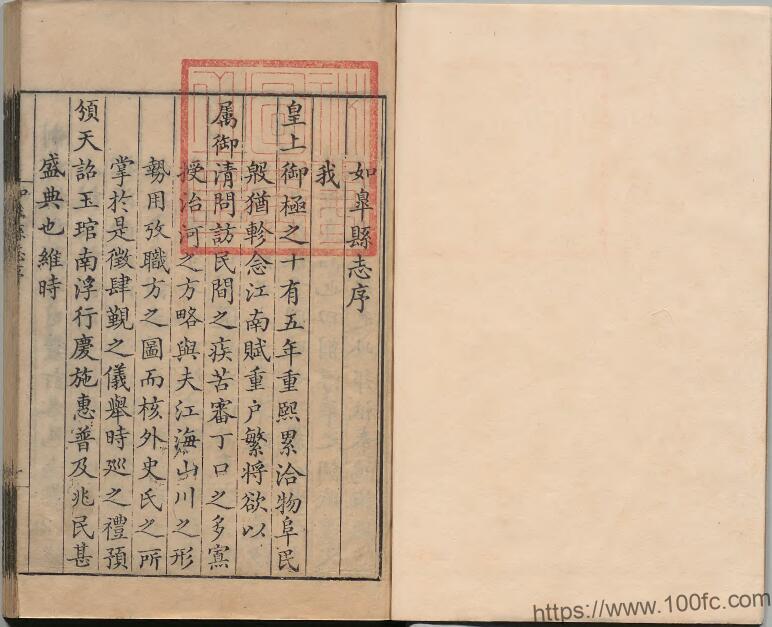 如臯縣志序
我
皇上御極之十有五年重熙累洽物阜民
殷猶軫念江南賦重户繁将欲以
属御清問訪民間之疾苦審丁口之多寡
授治河之方略與夫江海山川之形
勢用攷職方之圖而核外史氏之所
掌於是徵肆覲之儀舉時廵之禮預
頒天詔玉琯南浮行慶施惠普及兆民甚
盛典也維時
https://www.100fc.com